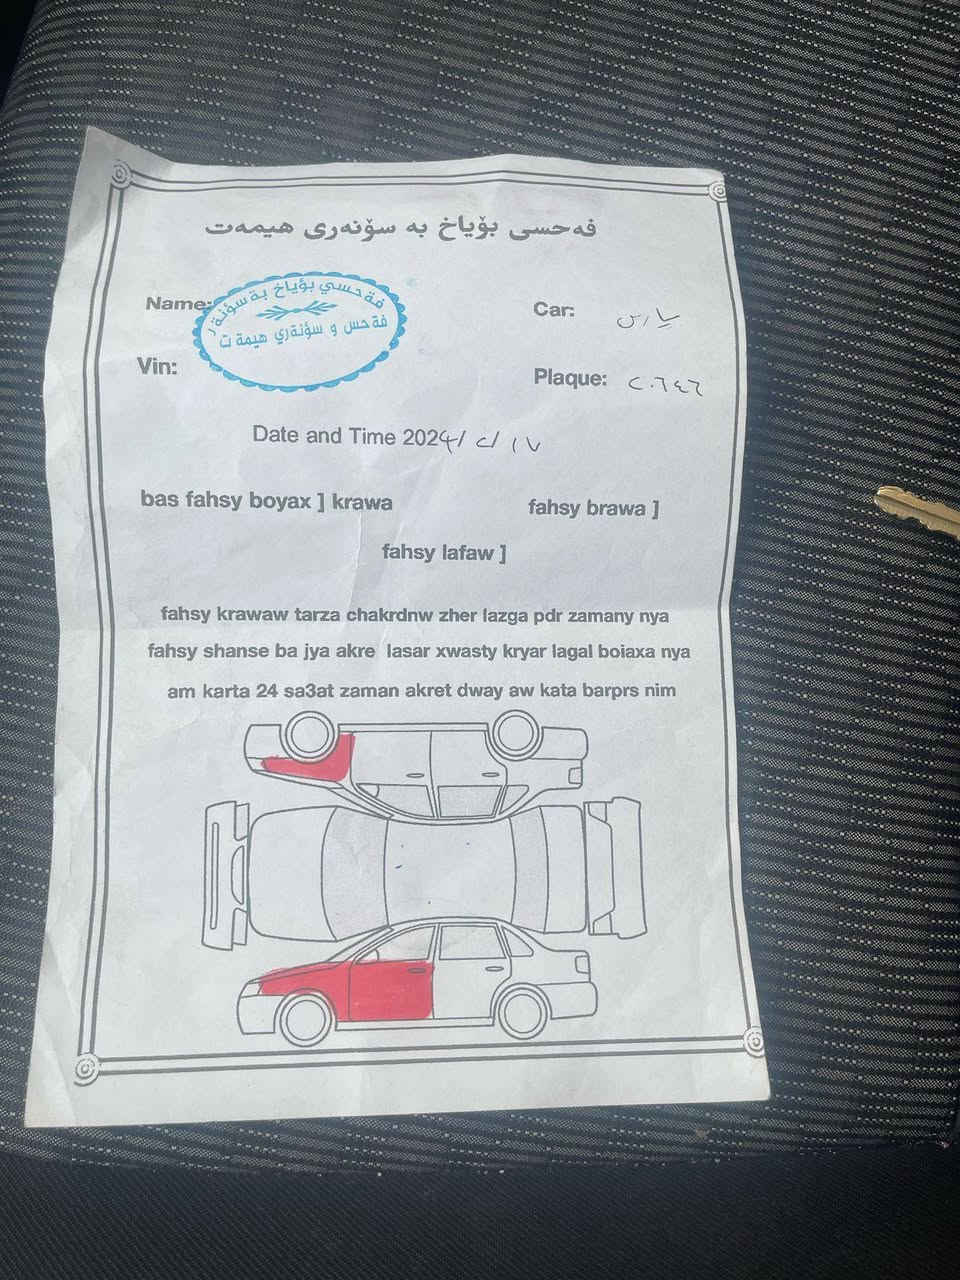 فەحسی بۆیاخ بە سۆنەری هیمەت
Name:
فةحسي بؤياخ بة سؤنةر
فةحس و سؤنةري هيمة ت
Car: پارس
Vin:
Plaque: ٢٠٦٤٦
Date and Time 2024/٢/١٧
bas fahsy boyax ] krawa
fahsy brawa ]
fahsy lafaw ]
fahsy krawaw tarza chakrdnw zher lazga pdr zamany nya
fahsy shanse ba jya akre lasar xwasty kryar lagal boiaxa nya
am karta 24 sa3at zaman akret dway aw kata barprs nim